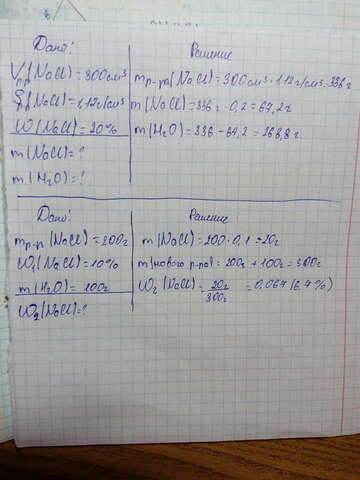 Дано:
Vр-р(NaCl)=300см³
ρ(NaCl)=1,12г/см³
W(NaCl)=20%
m(NaCl)=?
m(H₂O)=?
Решение
mр-ра(NaCl)=300см³·1,12г/см³=336г
m(NaCl)=336г·0,2=67,2г
m(H₂O)=336-67,2=268,8г
Дано:
mр-р(NaCl)=200г
W₁(NaCl)=10%
m(H₂O)=100г
W₂(NaCl)=?
Решение
m(NaCl)=200·0,1=20г
m(нового р-ра)=200г+100г=300г
W₂(NaCl)=20г/300г=0,067(6,7%)